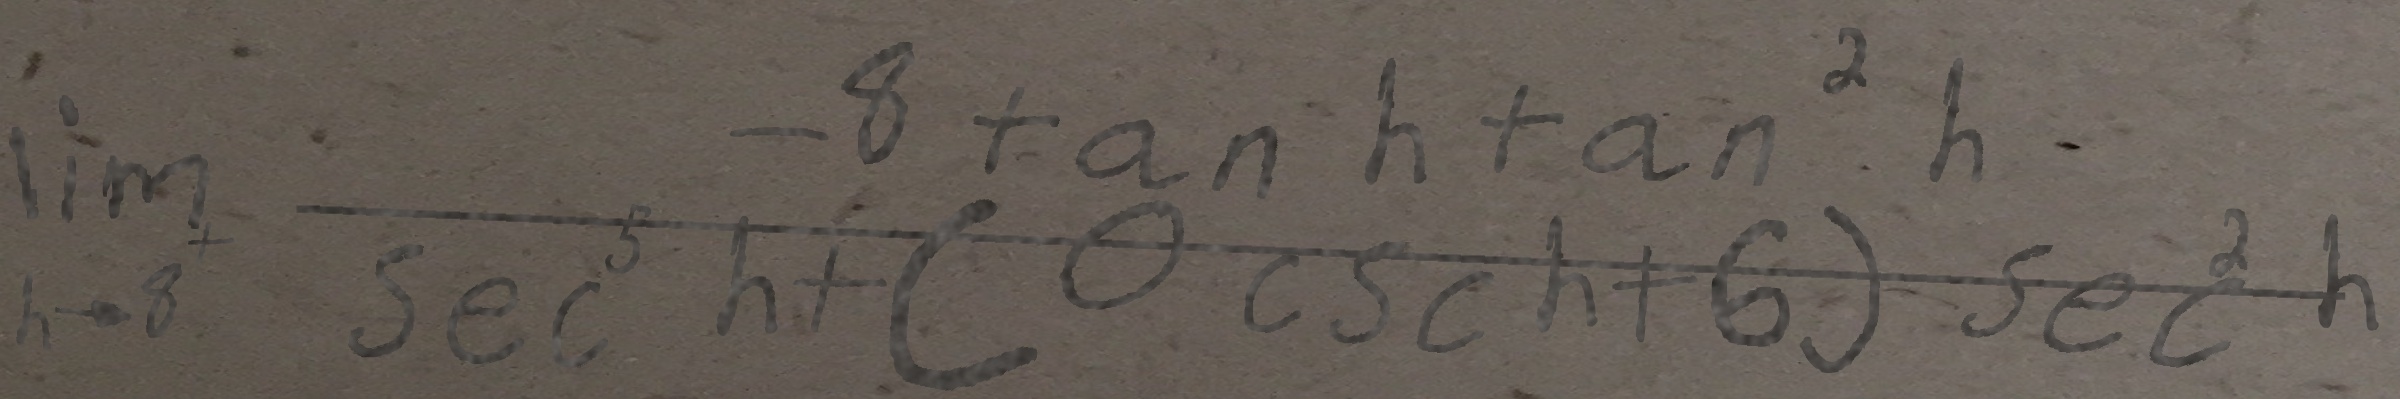 \lim_{h \to 8^+} \frac{-8 \tan h \tan^2 h}{\sec^5 h + (0 \csc h + 6) \sec^2 h}